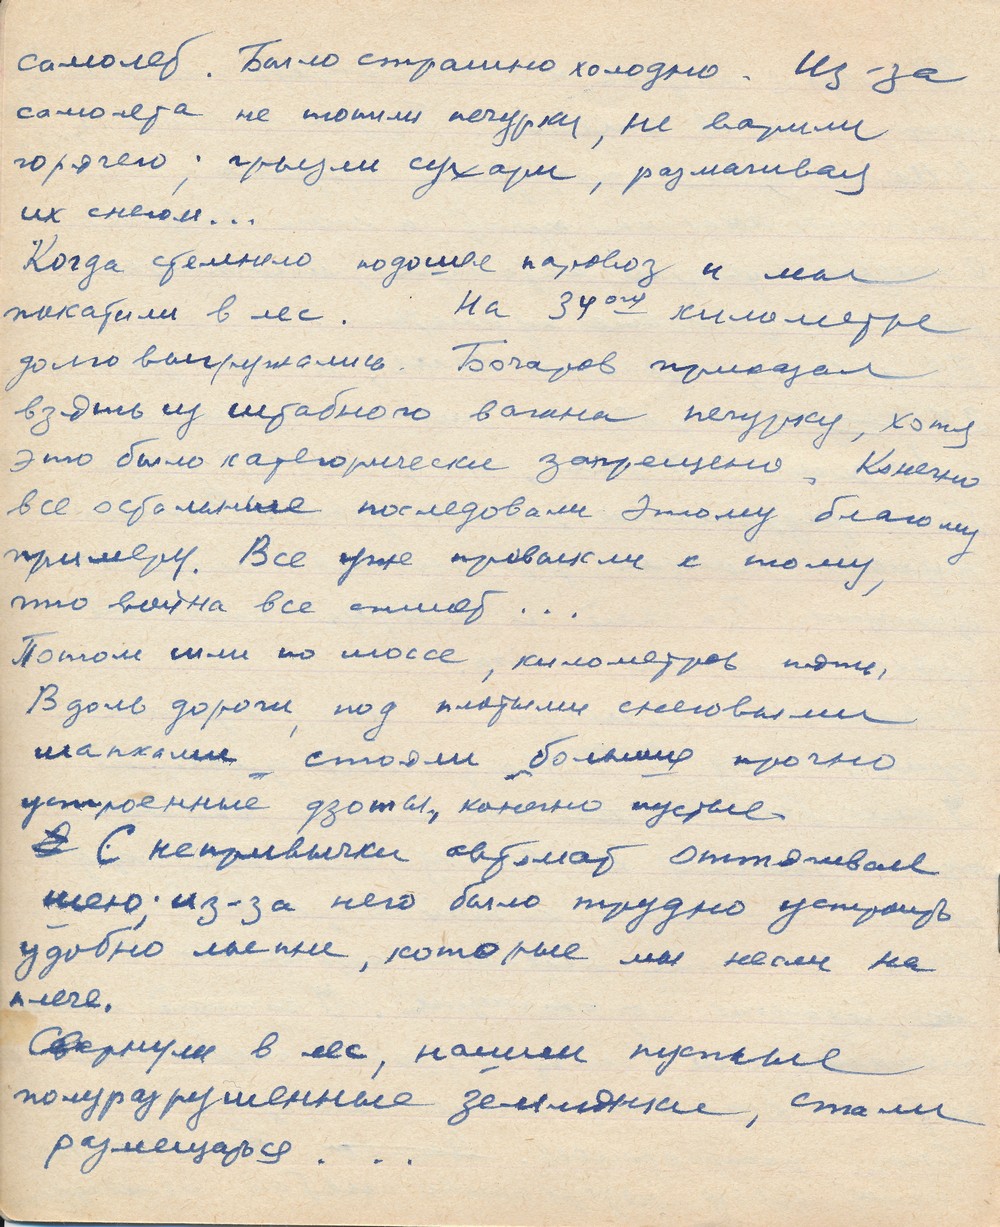 самолет. Было страшно холодно. Из-за
самолета не топили печурку, не варили
горячего; грызли сухари, размачивая
их снегом...
Когда стемнело подошел паровоз и мы
покатили в лес. На 34ом километре
долго выгружались. Бочаров приказал
взять из штабного вагона печурку, хотя
это было категорически запрещено. Конечно
все остальные последовали этому благому
примеру. Все уже привыкли к тому,
что война все спишет...
Потом шли по шоссе, километров пять.
Вдоль дороги, под снеговыми
шапками стояли большие прочно
устроенные дзоты, конечно пустые.
С непривычки автомат оттягивал
шею; из-за него было трудно устроить
удобно лыжи, которые мы несли на
плече.
Свернули в лес, нашли пустые
полуразрушенные землянки, стали
размещаться....